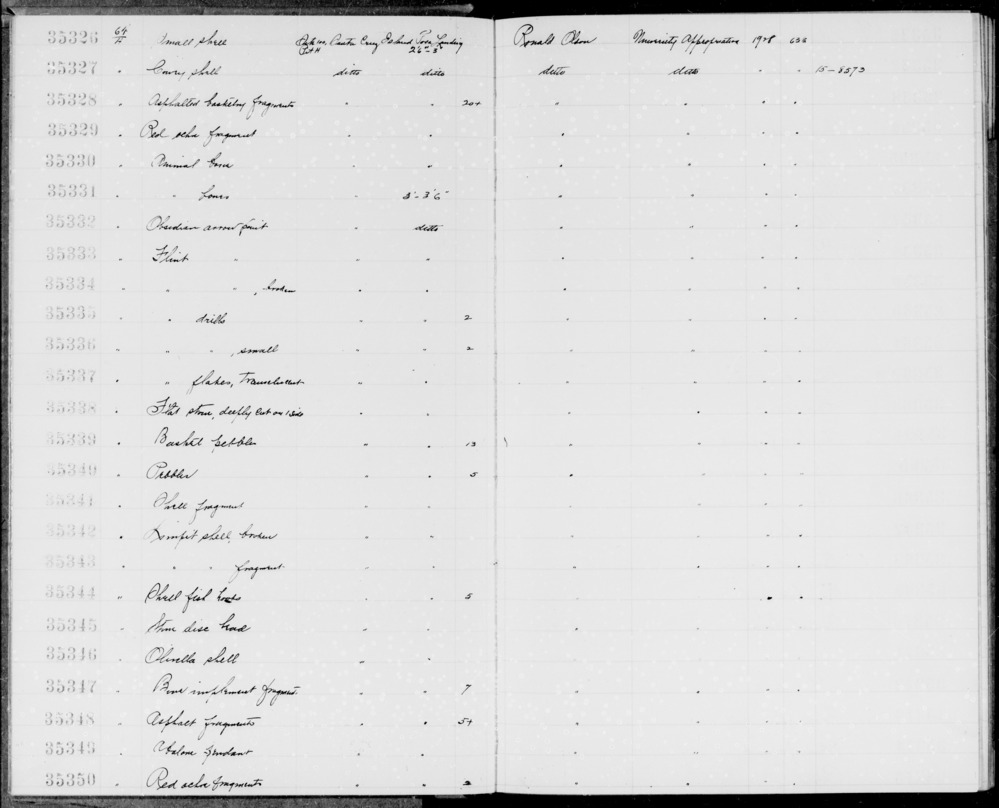 35326 64/2 Small shell Santa Cruz Island, Poso Landing Pit H 24"-3' Ronald Olson University Appropriation 1928 633
35327 " Cowry shell ditto ditto ditto ditto " " 15-8573
35328 " Asphalted basketry fragments " " 20+ " " " "
35329 " Red ochre fragment " " " " "
35330 " Animal bone " " " " " "
35331 " " bones " 3'-3'6" " " " "
35332 " Obsidian arrow point " ditto " " " "
35333 " Flint " " " " " " "
35334 " " " , broken " " " " " "
35335 " " drills " " 2 " " " "
35336 " " " , small " " 2 " " " "
35337 " " flakes, Translucent " " " " " "
35338 " Flat stone, deeply cut on 1 side " " " " " "
35339 " Basket pebbles " " 13 " " " "
35340 " Pebbles " " 5 " " " "
35341 " Shell fragment " " " " " "
35342 " Limpet shell, broken " " " " " "
35343 " " " fragment " " " " " "
35344 " Shell fish hooks " " 5 " " " "
35345 " Stone disc bead " " " " " "
35346 " Olivella shell " " " " " "
35347 " Bone implement fragments " " 7 " " " "
35348 " Asphalt fragments " " 5+ " " " "
35349 " Halone pendant " " " " " "
35350 " Red ochre fragments " " 2 " " " "